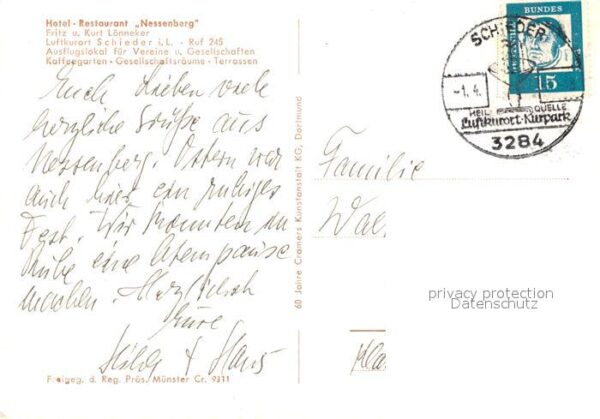 Hotel - Restaurant „Nessenberg"
Fritz u. Kurt Lönneker
Luftkurort Schieder i. L. - Ruf 245
Ausflugslokal für Vereine u. Gesellschaften
Kaffeegarten - Gesellschaftsräume - Terrassen
Euch Lieben viele
herzliche Grüße aus
Nessenberg. Ostern war
auch hier ein ruhiges
Fest. Wir konnten in
Ruhe eine Atempause
machen. Herzlichst
Eure
Hilde + Hans
Freigeg. d. Reg. Präs. Münster Cr. 9311
60 Jahre Cramers Kunstanstalt KG, Dortmund
BUNDES
15
SCHIEDER
-1. 4.
HEIL QUELLE
Luftkurort-Kurpark
3284
Familie
Wal
privacy protection
Datenschutz